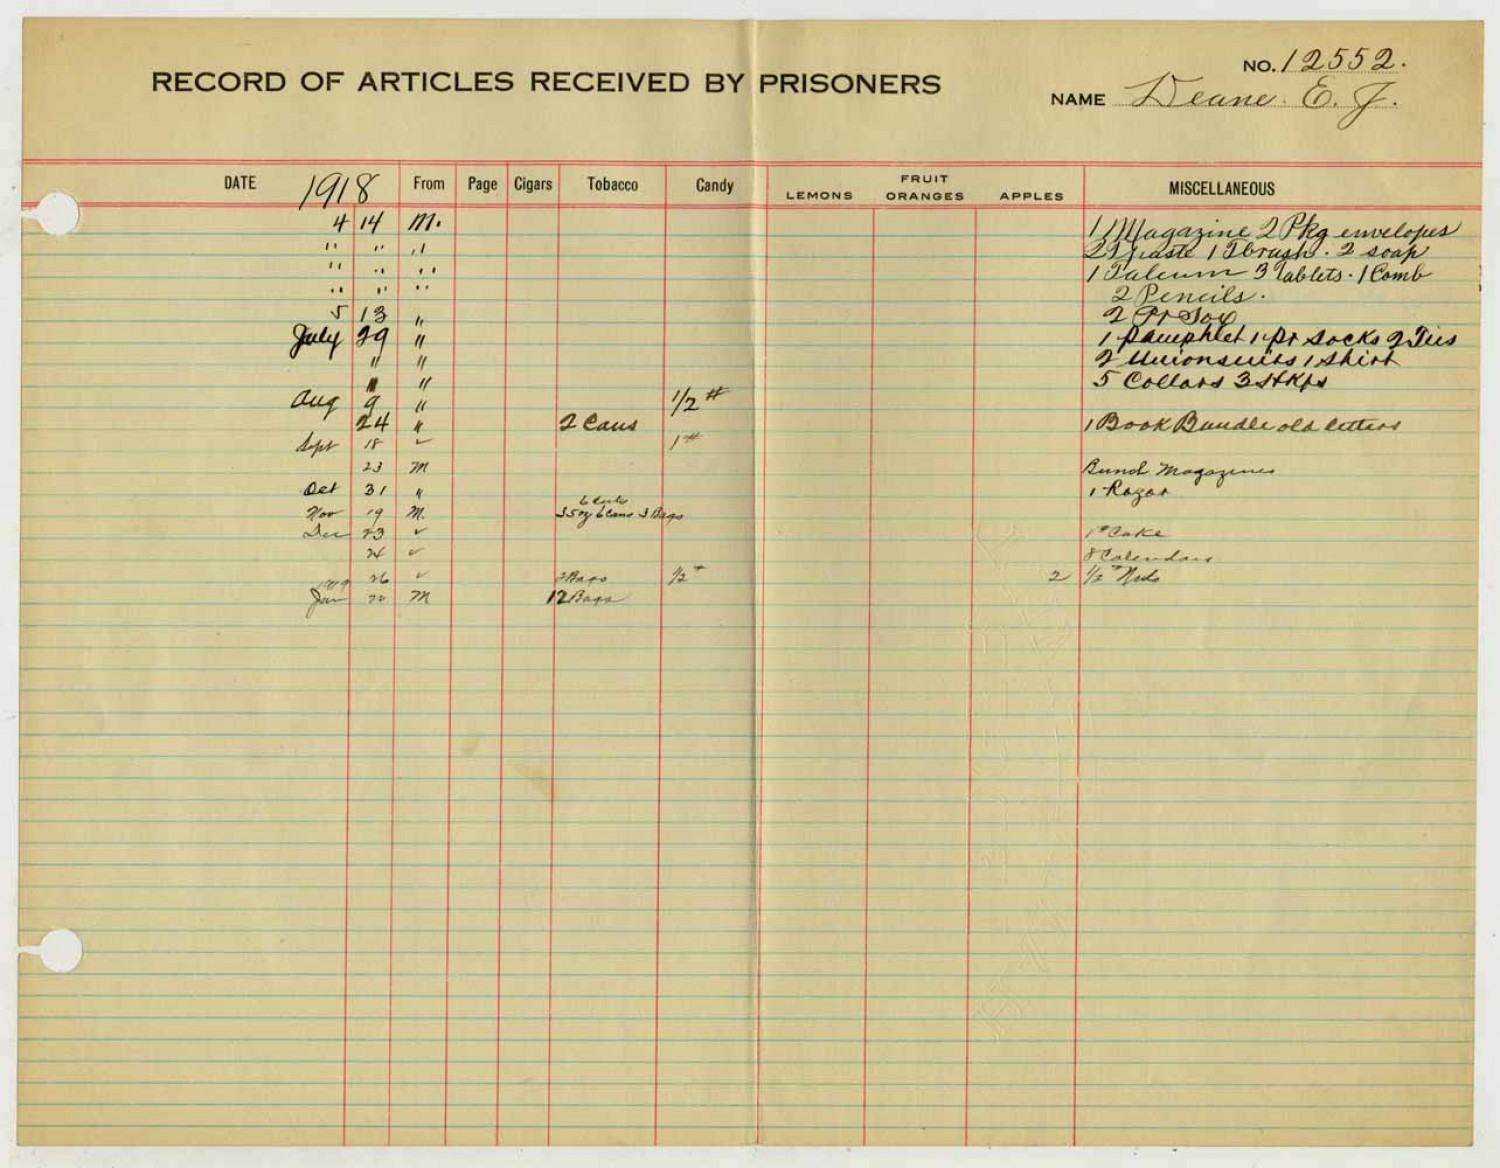 NO. 12552.
RECORD OF ARTICLES RECEIVED BY PRISONERS
NAME Deane. E. J.
DATE 1918 From Page Cigars Tobacco Candy LEMONS FRUIT ORANGES APPLES MISCELLANEOUS
4 14 M. 1 Magazine 2 Pkg envelopes
" " " 2 T paste 1 T brush. 2 soap
" " " 1 Talcum 3 Tablets. 1 Comb
" " " 2 Pencils.
5 13 " 2 Pr Sox
July 29 " 1 Pamphlet 1 pr socks 2 Ties
" " 2 Unionsuits 1 shirt
" " 5 Collars 3 Hkfs
Aug 9 " 1/2 #
24 " 2 Cans 1 Book Bundle old letters
Sept 18 ✓ 1 #
23 M Bunch Magazines
Oct 31 " 1 Razor
6
Nov 19 M. 6 Cans 3 Bags
Dec 23 ✓ 1 # Cake
24 ✓ 8 Calendars
26 ✓ Bags 1/2 # 2 1/2 # Nuts
1919
Jan 20 M 12 Bags